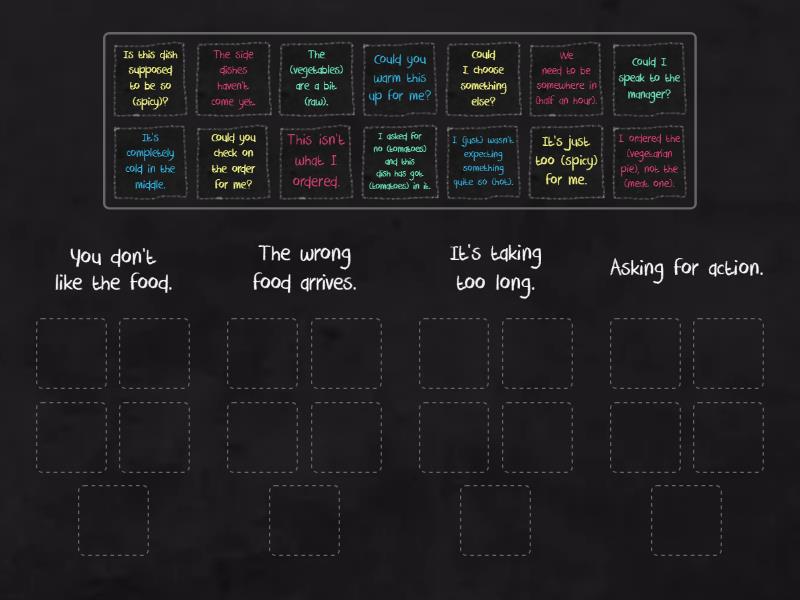 Is this dish
supposed
to be so
(spicy)?
The side
dishes
haven't
come yet.
The
(vegetables)
are a bit
(raw).
Could you
warm this
up for me?
Could
I choose
something
else?
We
need to be
somewhere in
(half an hour).
Could I
speak to the
manager?
It's
completely
cold in the
middle.
Could you
check on
the order
for me?
This isn't
what I
ordered.
I asked for
no (tomatoes)
and this
dish has got
(tomatoes) in it.
I (just) wasn't
expecting
something
quite so (hot).
It's just
too (spicy)
for me.
I ordered the
(vegetarian
pie), not the
(meat one).
You don't
like the food.
The wrong
food arrives.
It's taking
too long.
Asking for action.